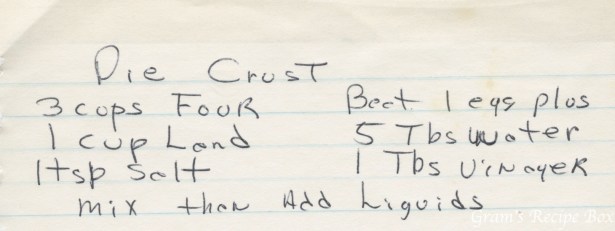 Pie Crust
3 cups FouR Beet 1 egg plus
1 cup Lard 5 Tbs water
1 tsp Salt 1 Tbs VinageR
mix than Add Liquids
Gram's Recipe Box